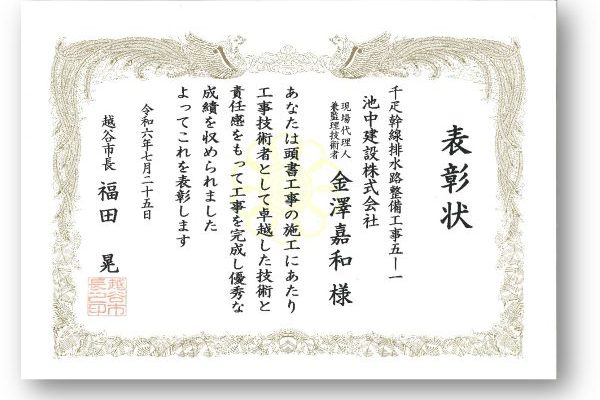 表彰状
千疋幹線排水路整備工事五―一
池中建設株式会社
現場代理人
兼監理技術者
金澤嘉和様
あなたは頭書工事の施工にあたり
工事技術者として卓越した技術と
責任感をもって工事を完成し優秀な
成績を収められました
よってこれを表彰します
令和六年七月二十五日
越谷市長 福田 晃
越谷市
長之印